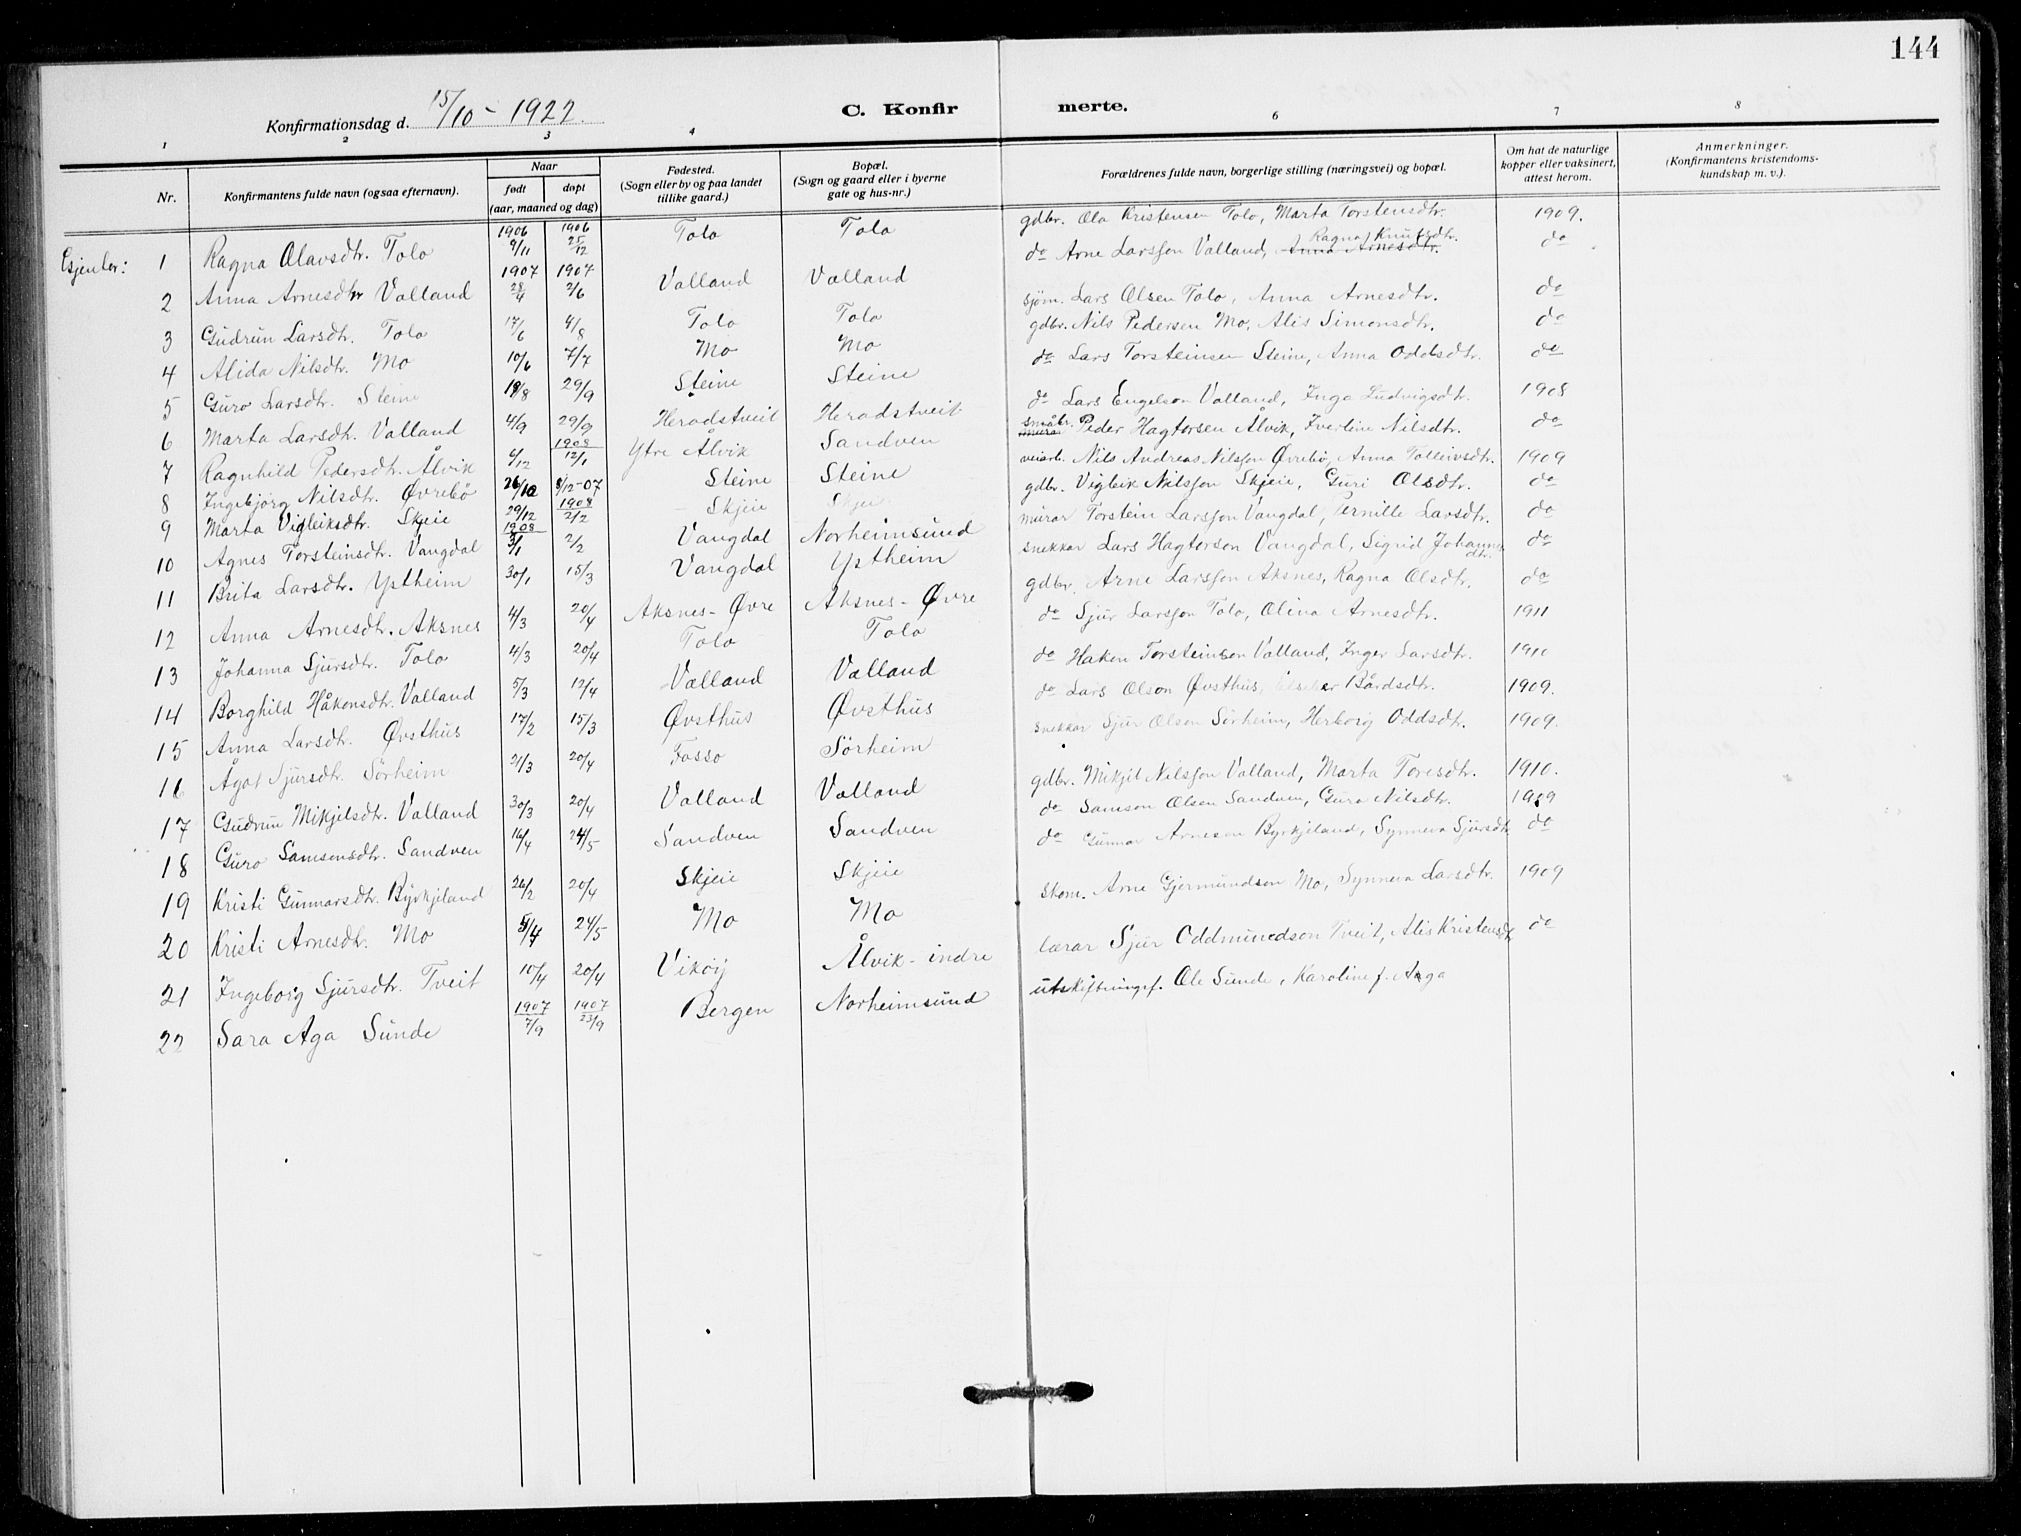 144
Konfirmationsdag d. 15/10 - 1922.
C. Konfir merte.
1 2 3 4 6 7 8
Nr. | Konfirmantens fulde navn (ogsaa efternavn). | Naar født | døpt (aar, maaned og dag) | Fødested. (Sogn eller by og paa landet tillike gaard.) | Bopæl. (Sogn og gaard eller i byerne gate og hus-nr.) | Forældrenes fulde navn, borgerlige stilling (næringsvei) og bopæl. | Om hat de naturlige kopper eller vaksinert, attest herom. | Anmerkninger. (Konfirmantens kristendomskundskap m. v.).
1 Ragna Olavsdtr. Tolo 1906 9/11 1906 25/12 Tolo Tolo gdbr. Ola Kristensen Tolo, Marta Torstensdtr. 1909.
2 Anna Arnesdtr Valland 1907 28/4 1907 2/6 Valland Valland do Arne Larsson Valland, Anna Arnesdtr. Ragna Knutsdtr. do
3 Gudrun Larsdtr. Tolo 17/6 4/8 Tolo Tolo sjøm. Lars Olsen Tolo, Anna Arnesdtr. do
4 Alida Nilsdtr. Mo 10/6 7/7 Mo Mo gdbr. Nils Pedersen Mo, Alis Simonsdtr. do
5 Guro Larsdtr. Steine 18/8 29/9 Steine Steine do Lars Torsteinsen Steine, Anna Oddsdtr. do
6 Marta Larsdtr. Valland 4/9 29/9 Heradstveit Heradstveit do Lars Engelson Valland, Inga Ludvigsdtr. 1908
7 Ragnhild Pedersdtr. Ålvik 6/12 1908 12/1 Ytre Ålvik Sandven småbr. Peder Hagtorsen Ålvik, Iverline Nilsdtr. do
8 Ingebjørg Nilsdtr. Øvrebø 26/10 8/12-07 Steine Steine veiarb. Nils Andreas Nilsson Øvrebø, Anna Tolleivsdtr. 1909
9 Marta Vigleiksdtr. Skjeie 29/12 1908 2/2 Skjeie Skjei gdbr. Vigleik Nilsson Skjeie, Guri Olsdtr. do
10 Agnes Torsteinsdtr. Vangdal 1908 3/1 2/2 Vangdal Norheimsund murar Torstein Larsson Vangdal, Pernille Larsdtr. do
11 Brita Larsdtr. Yptheim 30/1 15/3 Vangdal Yptheim snekkar Lars Hagtorson Vangdal, Sigrid Johannesdtr. do
12 Anna Arnesdtr. Aksnes 4/3 20/4 Aksnes-Øvre Aksnes-Øvre gdbr. Arne Larsson Aksnes, Ragna Olsdtr. do
13 Johanna Sjursdtr. Tolo 4/3 20/4 Tolo Tolo do Sjur Larsson Tolo, Olina Arnesdtr. 1911
14 Borghild Håkonsdtr. Valland 5/3 12/4 Valland Valland do Hakon Torsteinson Valland, Inger Larsdtr. 1910
15 Anna Larsdtr. Øvsthus 17/2 15/3 Øvsthus Øvsthus do Lars Olson Øvsthus, Bårdsdtr. 1909.
16 Ågot Sjursdtr. Sørheim 21/3 20/4 Fosso Sørheim snekkar Sjur Olsen Sørheim, Herborg Oddsdtr. 1909.
17 Gudrun Mikjelsdtr. Valland 30/3 20/4 Valland Valland gdbr. Mikjel Nilsson Valland, Marta Toresdtr. 1910.
18 Guro Samsonsdtr. Sandven 16/4 24/5 Sandven Sandven do Samson Olsen Sandven, Guro Nilsdtr. 1909
19 Kristi Gunnarsdtr. Byrkjeland 26/2 20/4 Skjeie Skjeie do Gunnar Arneson Byrkjeland, Synneva Sjursdtr. do
20 Kristi Arnesdtr. Mo 5/4 24/5 Mo Mo skom. Arne Gjermundson Mo, Synneva Larsdtr. 1909
21 Ingeborg Sjursdtr. Tveit 10/4 20/4 Vikøy Ålvik-indre lærar Sjur Oddmundson Tveit, Alis Kristensdtr. do
22 Sara Aga Sunde 1907 7/9 1907 23/9 Bergen Norheimsund utskiftningsf. Ole Sunde, Karoline f. Aga